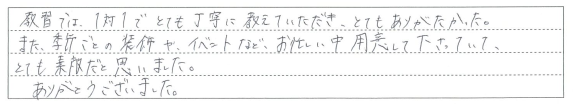 教習では、1対1でとても丁寧に教えていただき、とてもありがたかった。
また、季節ごとの装飾や、イベントなど、お忙しい中用意して下さっていて、
とても素敵だと思いました。
ありがとうございました。